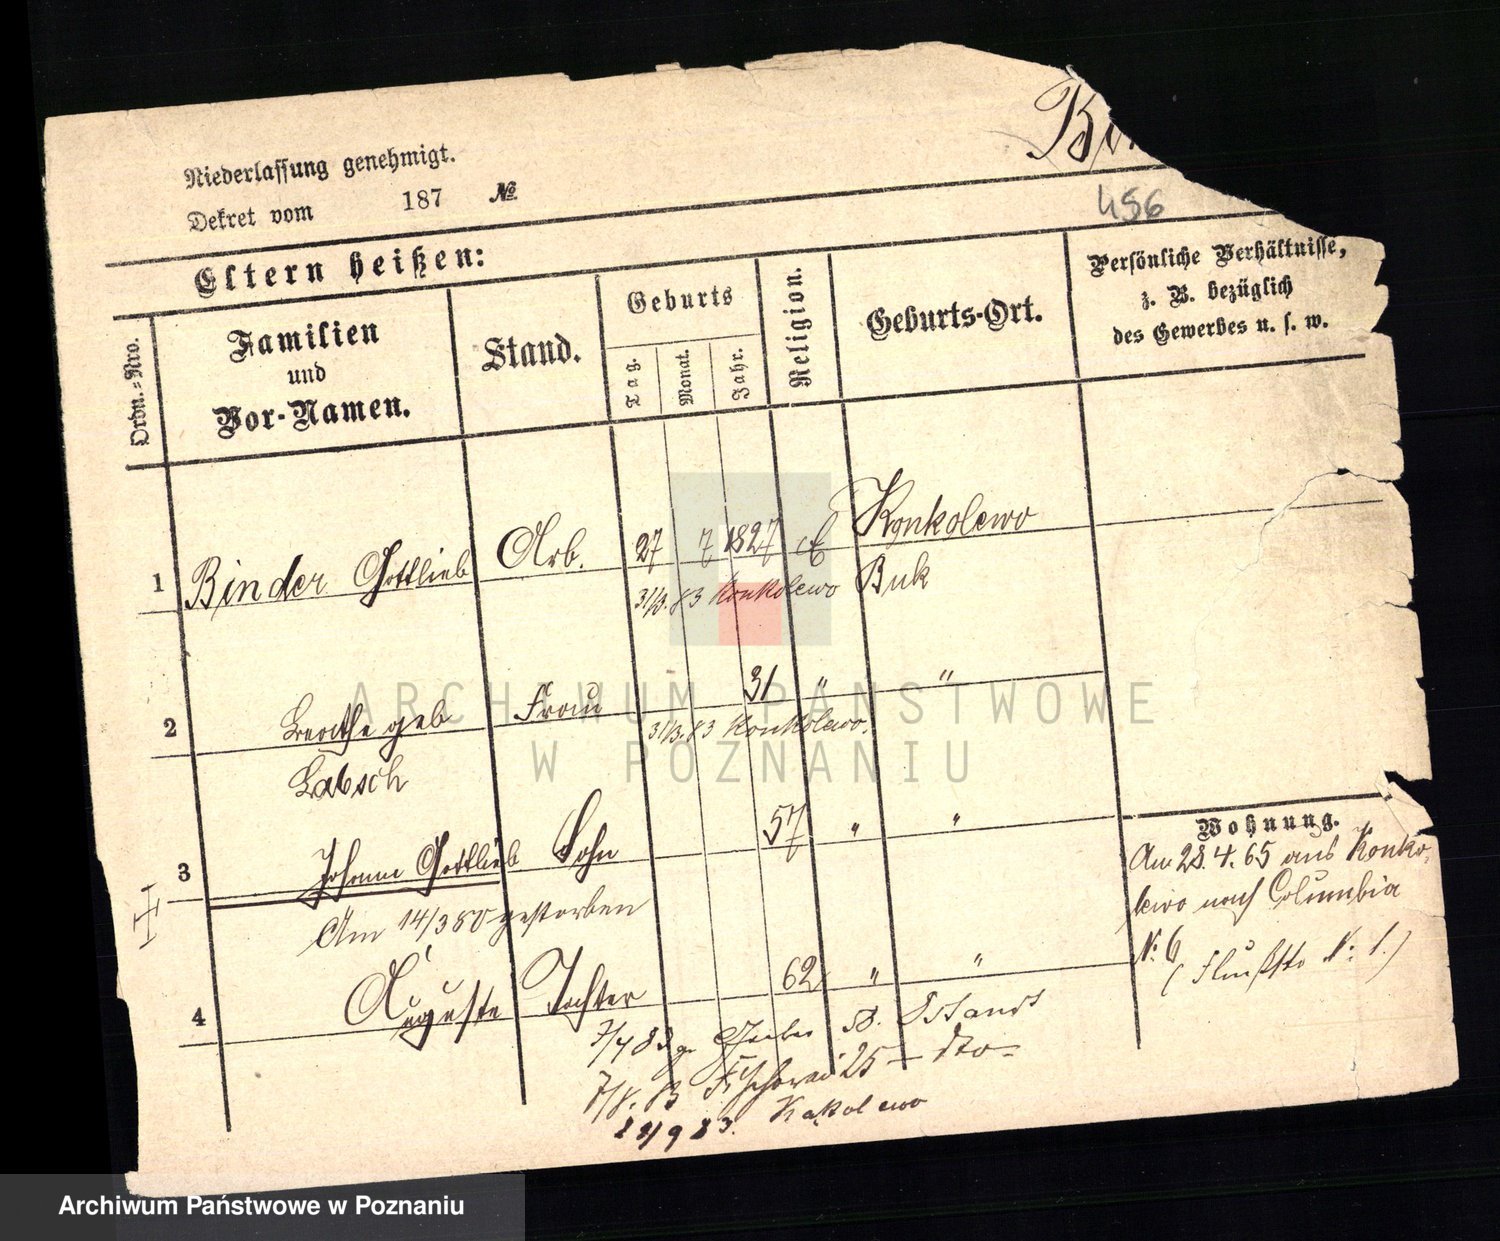 Niederlassung genehmigt.
Dekret vom 187 №
456
Eltern heißen:
Ordn.-Nro.
Familien
und
Vor-Namen.
Stand.
Geburts
Tag.
Monat.
Jahr.
Religion.
Geburts-Ort.
Persönliche Verhältnisse,
z. B. bezüglich
des Gewerbes u. s. w.
1 Binder Gottlieb Arb. 27 7 1827 E Konkolewo
31/3. 83 Konkolewo Buk
2 geb Frau 31 " "
31/3. 83 Konkolewo.
Labsch
3 Johann Gottlieb Sohn 57 " "
Am 14/3 80 gestorben
4 Auguste Tochter 62 " "
7/4 83
7/8. 83 25 - dto -
28/9 83. Kąkolewo
Wohnung.
Am 28. 4. 65 aus Konko-
lewo nach Columbia
N: 6
( N: 1. )
ARCHIWUM PAŃSTWOWE
W POZNANIU
Archiwum Państwowe w Poznaniu